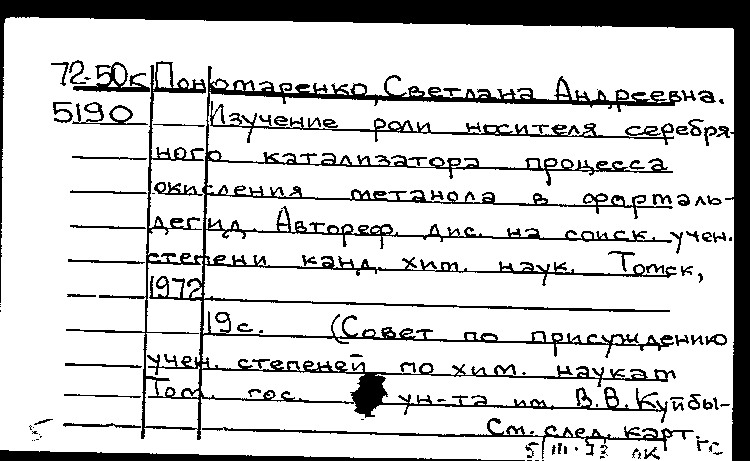 72-50к Пономаренко, Светлана Андреевна.
5190 Изучение роли носителя серебря-
ного катализатора процесса
окисления метанола в формаль-
дегид. Автореф. дис. на соиск. учен.
степени канд. хим. наук. Томск,
1972
19с. (Совет по присуждению
учен. степеней по хим. наукам
Том. гос. ун-та им. В.В. Куйбы-
См. след. карт